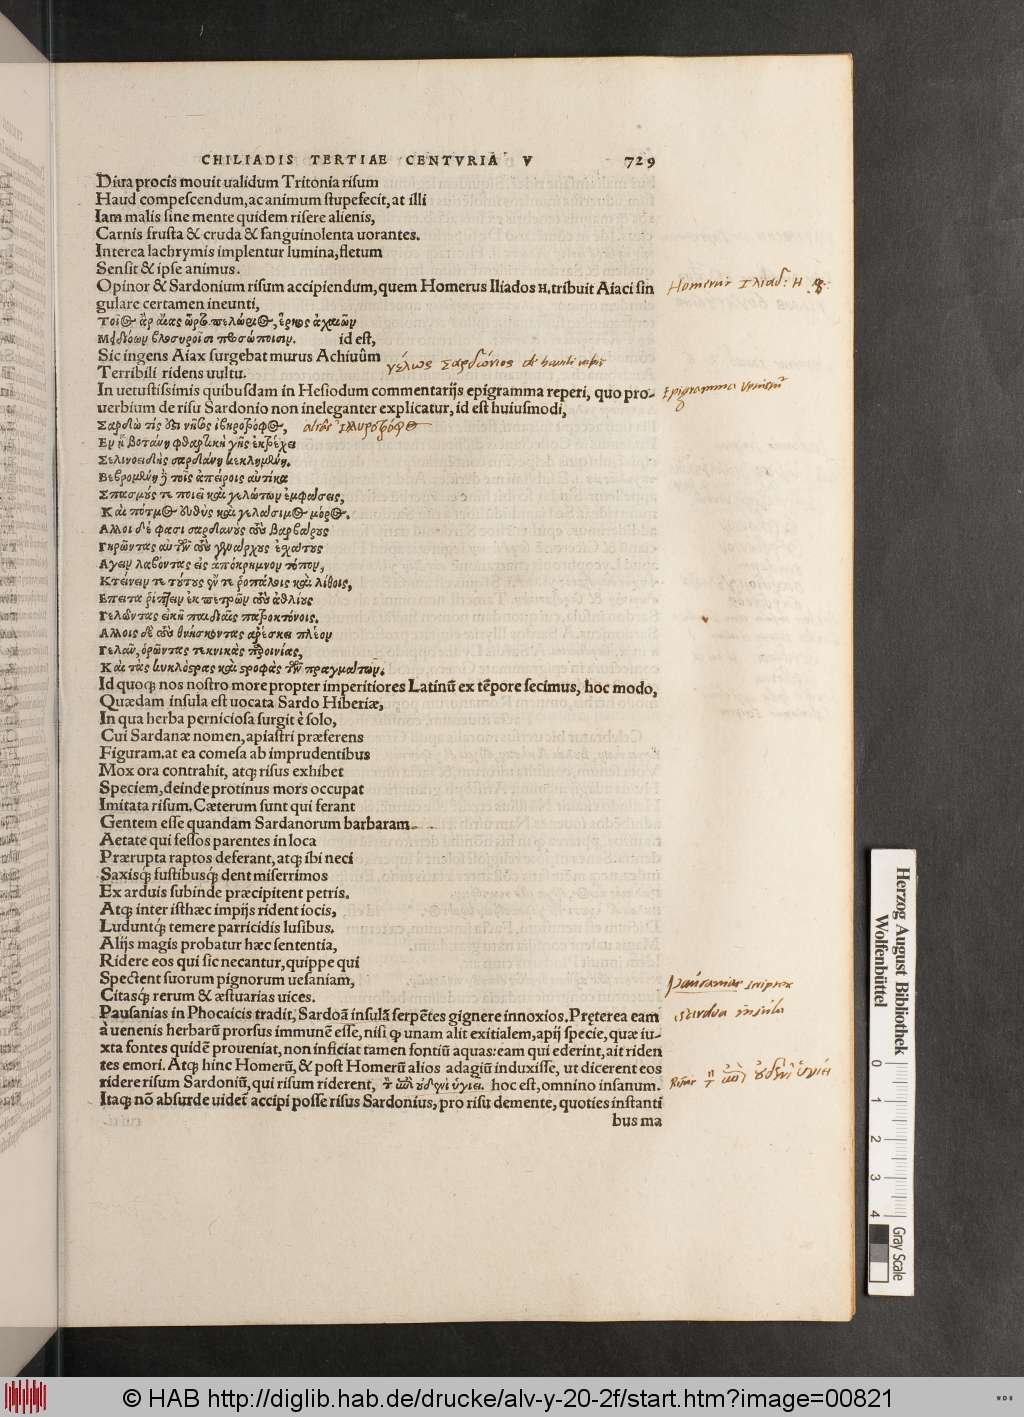 CHILIADIS TERTIAE CENTVRIA V 729
Diua procis mouit ualidum Tritonia risum
Haud compescendum, ac animum stupefecit, at illi
Iam malis sine mente quidem risere alienis,
Carnis frusta & cruda & sanguinolenta uorantes.
Interea lachrymis implentur lumina, fletum
Sensit & ipse animus.
Opinor & Sardonium risum accipiendum, quem Homerus Iliados H. tribuit Aiaci sin
Homerus Iliad: H
gulare certamen ineunti,
Τοῖος ἄρ αἴας ὦρτο πελώριος, ἕρκος ἀχαιῶν
Μειδιόων βλοσυροῖσι προσώποισιν. id est,
Sic ingens Aiax surgebat murus Achiuûm
Terribili ridens uultu.
γέλως Σαρδώνιος
In uetustissimis quibusdam in Hesiodum commentarijs epigramma reperi, quo pro-
Epigramma
uerbium de risu Sardonio non ineleganter explicatur, id est huiusmodi,
Σαρδὼ τίς ὅτι νῆσος ἰβηροτρόφος,
Εν ᾗ βοτάνη φθαρτικὴ γῆς ἐκτρέχει
Σελινοειδὴς σαρδάνη κεκλημένη.
Βεβρωμένη ἢ τοῖς ἀπείροις αὐτίκα
Σπασμούς τε ποιεῖ καὶ γελώτων ἐμφάσεις,
Καὶ πότμος εὐθὺς καὶ γελάσιμος μόρος.
Αλλοι δέ φασι σαρδανοὺς τοὺς βαρβάρους
Γηρῶντας αὐτῶν τοὺς ἐσχάτους
Αγειν λαβόντας εἰς ἀπόκρημνον τόπον,
Κτείνειν τε τούτους ἔν τε ῥοπάλοις καὶ λίθοις,
Επειτα ῥίπτειν ἐκ πετρῶν τοὺς ἀθλίους
Γελῶντας εἰκῆ παιδιαῖς πατροκτόνοις.
Αλλοις δὲ τοὺς θνήσκοντας ἀρέσκει πλέον
Γελᾶν, ὁρῶντας τεκνικὰς παροινίας,
Καὶ τὰς κυκλόσρας καὶ στροφὰς τῶν πραγμάτων.
Id quoq; nos nostro more propter imperitiores Latinũ ex tẽpore fecimus, hoc modo,
Quædam insula est uocata Sardo Hiberiæ,
In qua herba perniciosa surgit è solo,
Cui Sardanæ nomen, apiastri præferens
Figuram. at ea comesa ab imprudentibus
Mox ora contrahit, atq; risus exhibet
Speciem, deinde protinus mors occupat
Imitata risum. Cæterum sunt qui ferant
Gentem esse quandam Sardanorum barbaram.
Aetate qui fessos parentes in loca
Prærupta raptos deferant, atq; ibi neci
Saxisq; fustibusq; dent miserrimos
Ex arduis subinde præcipitent petris.
Atq; inter isthæc impijs rident iocis,
Luduntq; temere parricidis lusibus.
Alijs magis probatur hæc sententia,
Ridere eos qui sic necantur, quippe qui
Spectent suorum pignorum uesaniam,
Citasq; rerum & æstuarias uices.
Pausanias scriptor
Pausanias in Phocaicis tradit, Sardoã insulã serpẽtes gignere innoxios. Pręterea eam
Sardoa insula
à uenenis herbarũ prorsus immunẽ esse, nisi q; unam alit exitialem, apij specie, quæ iu-
xta fontes quidẽ proueniat, non inficiat tamen fontiũ aquas: eam qui ederint, ait riden
tes emori. Atq; hinc Homerũ, & post Homerũ alios adagiũ induxisse, ut dicerent eos
ridere risum Sardoniũ, qui risum riderent, τὸν ἐπὶ οὐδενὶ ὑγιεῖ. hoc est, omnino insanum.
Risus ἐπὶ οὐδενὶ ὑγιεῖ
Itaq; nõ absurde uidet̃ accipi posse risus Sardonius, pro risu demente, quoties instanti
bus ma
Herzog August Bibliothek
Wolfenbüttel
0 1 2 3 4
Gray Scale
© HAB http://diglib.hab.de/drucke/alv-y-20-2f/start.htm?image=00821